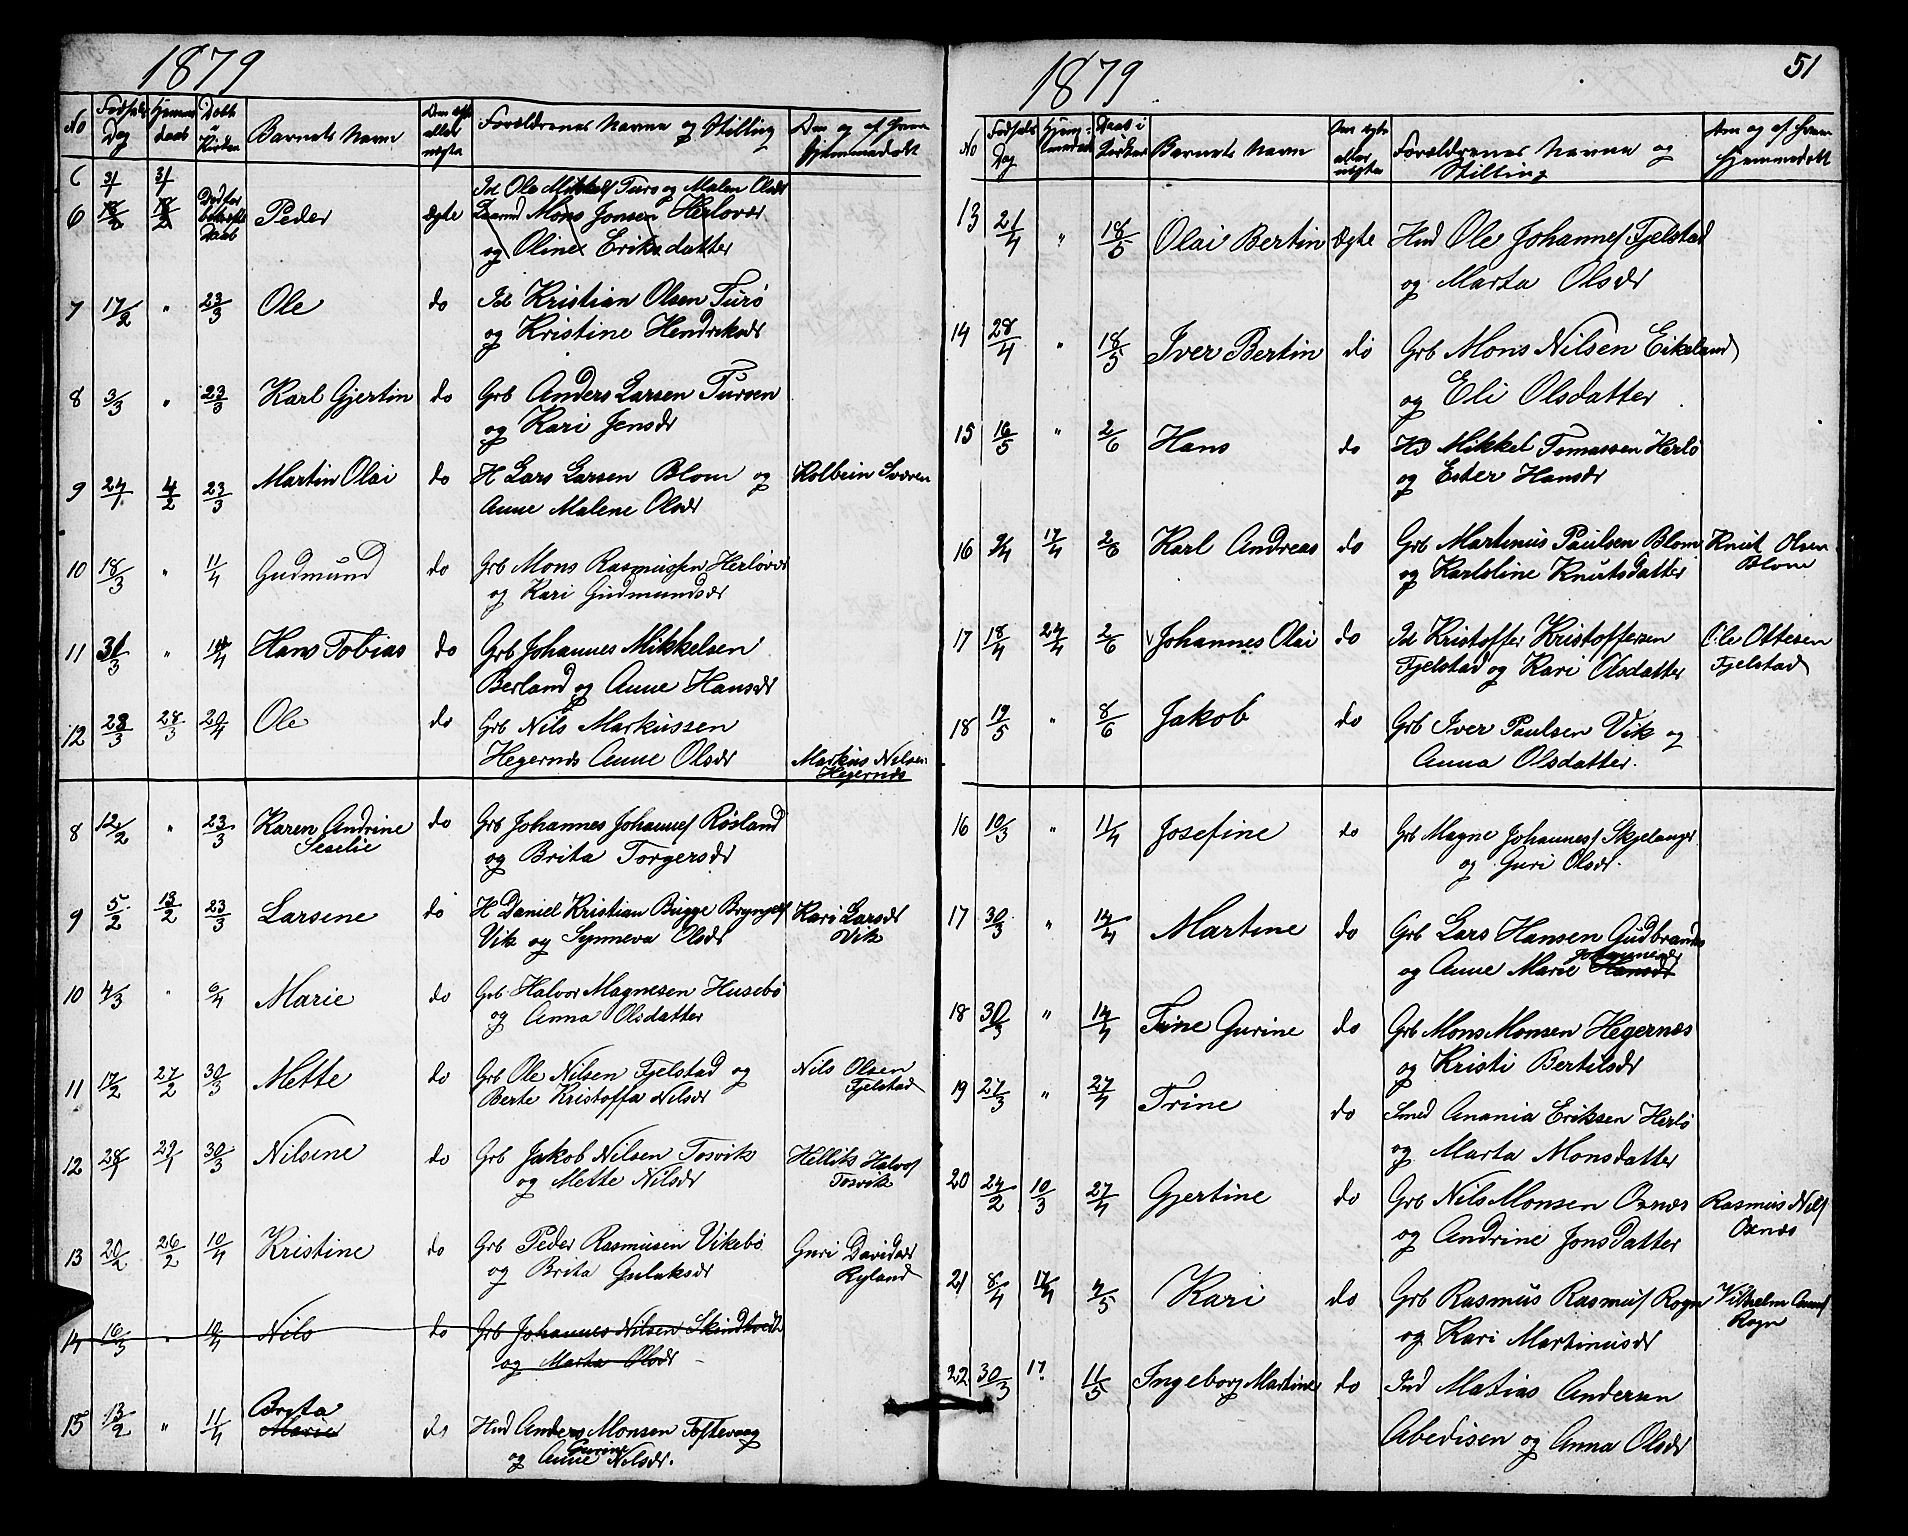 1879
No Fødsels Dag Hjemme daab Døbt i Kirken Barnets Navn Om ægte eller uægte Forældrenes Navne og Stilling Om og af hvem hjemmedøbt
6 3/1 3/1 Ind Ole Mikkels/ Turø og Malen Olsdr
6 18/2 18/2 Død før bekræftet Daab Peder Ægte Mons Jonsen Herløvær
og Oline Eriksdatter
7 17/2 " 23/3 Ole do Ind Kristian Olsen Turø
og Kristine Hendriksdr
8 3/3 " 23/3 Karl Gjertin do Grb Anders Larsen Tursen
og Kari Jensdr
9 24/1 4/2 23/3 Martin Olai do H Lars Larsen Blom og Kolbein Sværen
Anne Malene Olsdr
10 18/3 " 11/4 Gudmund do Grb Mons Rasmussen Herløvær
og Kari Gudmundsdr
11 31/3 " 14/4 Hans Tobias do Grb Johannes Mikkelsen
Berland og Anne Hansdr
12 23/3 28/3 20/4 Ole do Grb Nils Markussen
Hegernes Anne Olsdr Markus Nilsen
Hegernæs
8 12/2 " 23/3 Karen Andrine do Grb Johannes Johannes/ Røsland
Seselie og Brita Torgersdr
9 5/2 13/2 23/3 Larsene do H Daniel Kristian Bugge Brynjels/ Kari Larsdr
Vik og Synneva Olsdr Vik
10 4/3 " 6/4 Marie do Grb Halvor Magnesen Husebø
og Anna Olsdatter
11 17/2 27/2 30/3 Mette do Grb Ole Nilsen Fjelstad og Nils Olsen
Berte Kristoffa Nilsdr Fjelstad
12 28/1 29/1 30/3 Nilsine do Grb Jakob Nilsen Tosvik Hellik Halvo/
og Mette Nilsdr Tosvik
13 20/2 26/2 10/4 Kristine do Grb Peder Rasmusen Vikebø Guri Davidsdr
og Brita Gulaksdr Ryland
14 16/3 " 10/4 Nils do Grb Johannes Nilsen Skindtvedt
og Marta Olsdr
15 13/2 " 11/4 Brita do Hmd Anders Monsen Toftevaag
Marie og Anne Gurine Nilsdr.
1879 51
No Fødsels Dag Hjemmedaab Daab i Kirken Barnets Navn Om ægte eller uægte Forældrenes Navne og Stilling Om og af hvem hjemmedøbt
13 21/4 " 18/5 Olai Bertin Ægte Hmd Ole Johannes/ Fjelstad
og Marta Olsdr
14 28/4 " 18/5 Iver Bertin do Grb Mons Nilsen Eikeland
og Eli Olsdatter
15 16/5 " 2/6 Hans do Hd Mikkel Tomassen Herlø
og Ester Hansdr
16 9/4 17/4 2/6 Karl Andreas do Grb Martinus Paulsen Blom Knut Olsen
og Karloline Knutsdatter Blom
17 18/4 24/4 2/6 Johannes Olai do Ind Kristoffer Kristoffersen Ole Ottesen
Fjelstad og Kari Olsdatter Fjelstad
18 19/5 " 8/6 Jakob do Grb Iver Paulsen Vik og
Anna Olsdatter.
16 10/3 " 11/4 Josefine do Grb Magne Johannes/ Skjelanger
og Guri Olsdr
17 30/3 " 14/4 Martine do Grb Lars Hansen Gudbrands
og Anne Marie Hansdr Johannesdr
18 30/3 " 14/4 Trine Gurine do Grb Mons Monsen Hegernæs
og Kristi Bertilsdr
19 27/3 " 27/4 Trine do Smed Anania Eriksen Herlø
og Marta Monsdatter
20 24/2 10/3 27/4 Gjertine do Grb Nils Monsen Oxnæs Rasmus Nils/
og Andrine Jonsdatter Oxnæs
21 8/4 17/4 4/5 Kari do Grb Rasmus Rasmus/ Rogn Vilhelm Anns/
og Kari Martinusdr Rogn
22 30/3 17 11/5 Ingeborg Martine do Ind Matias Andersen
Abedisen og Anna Olsdr